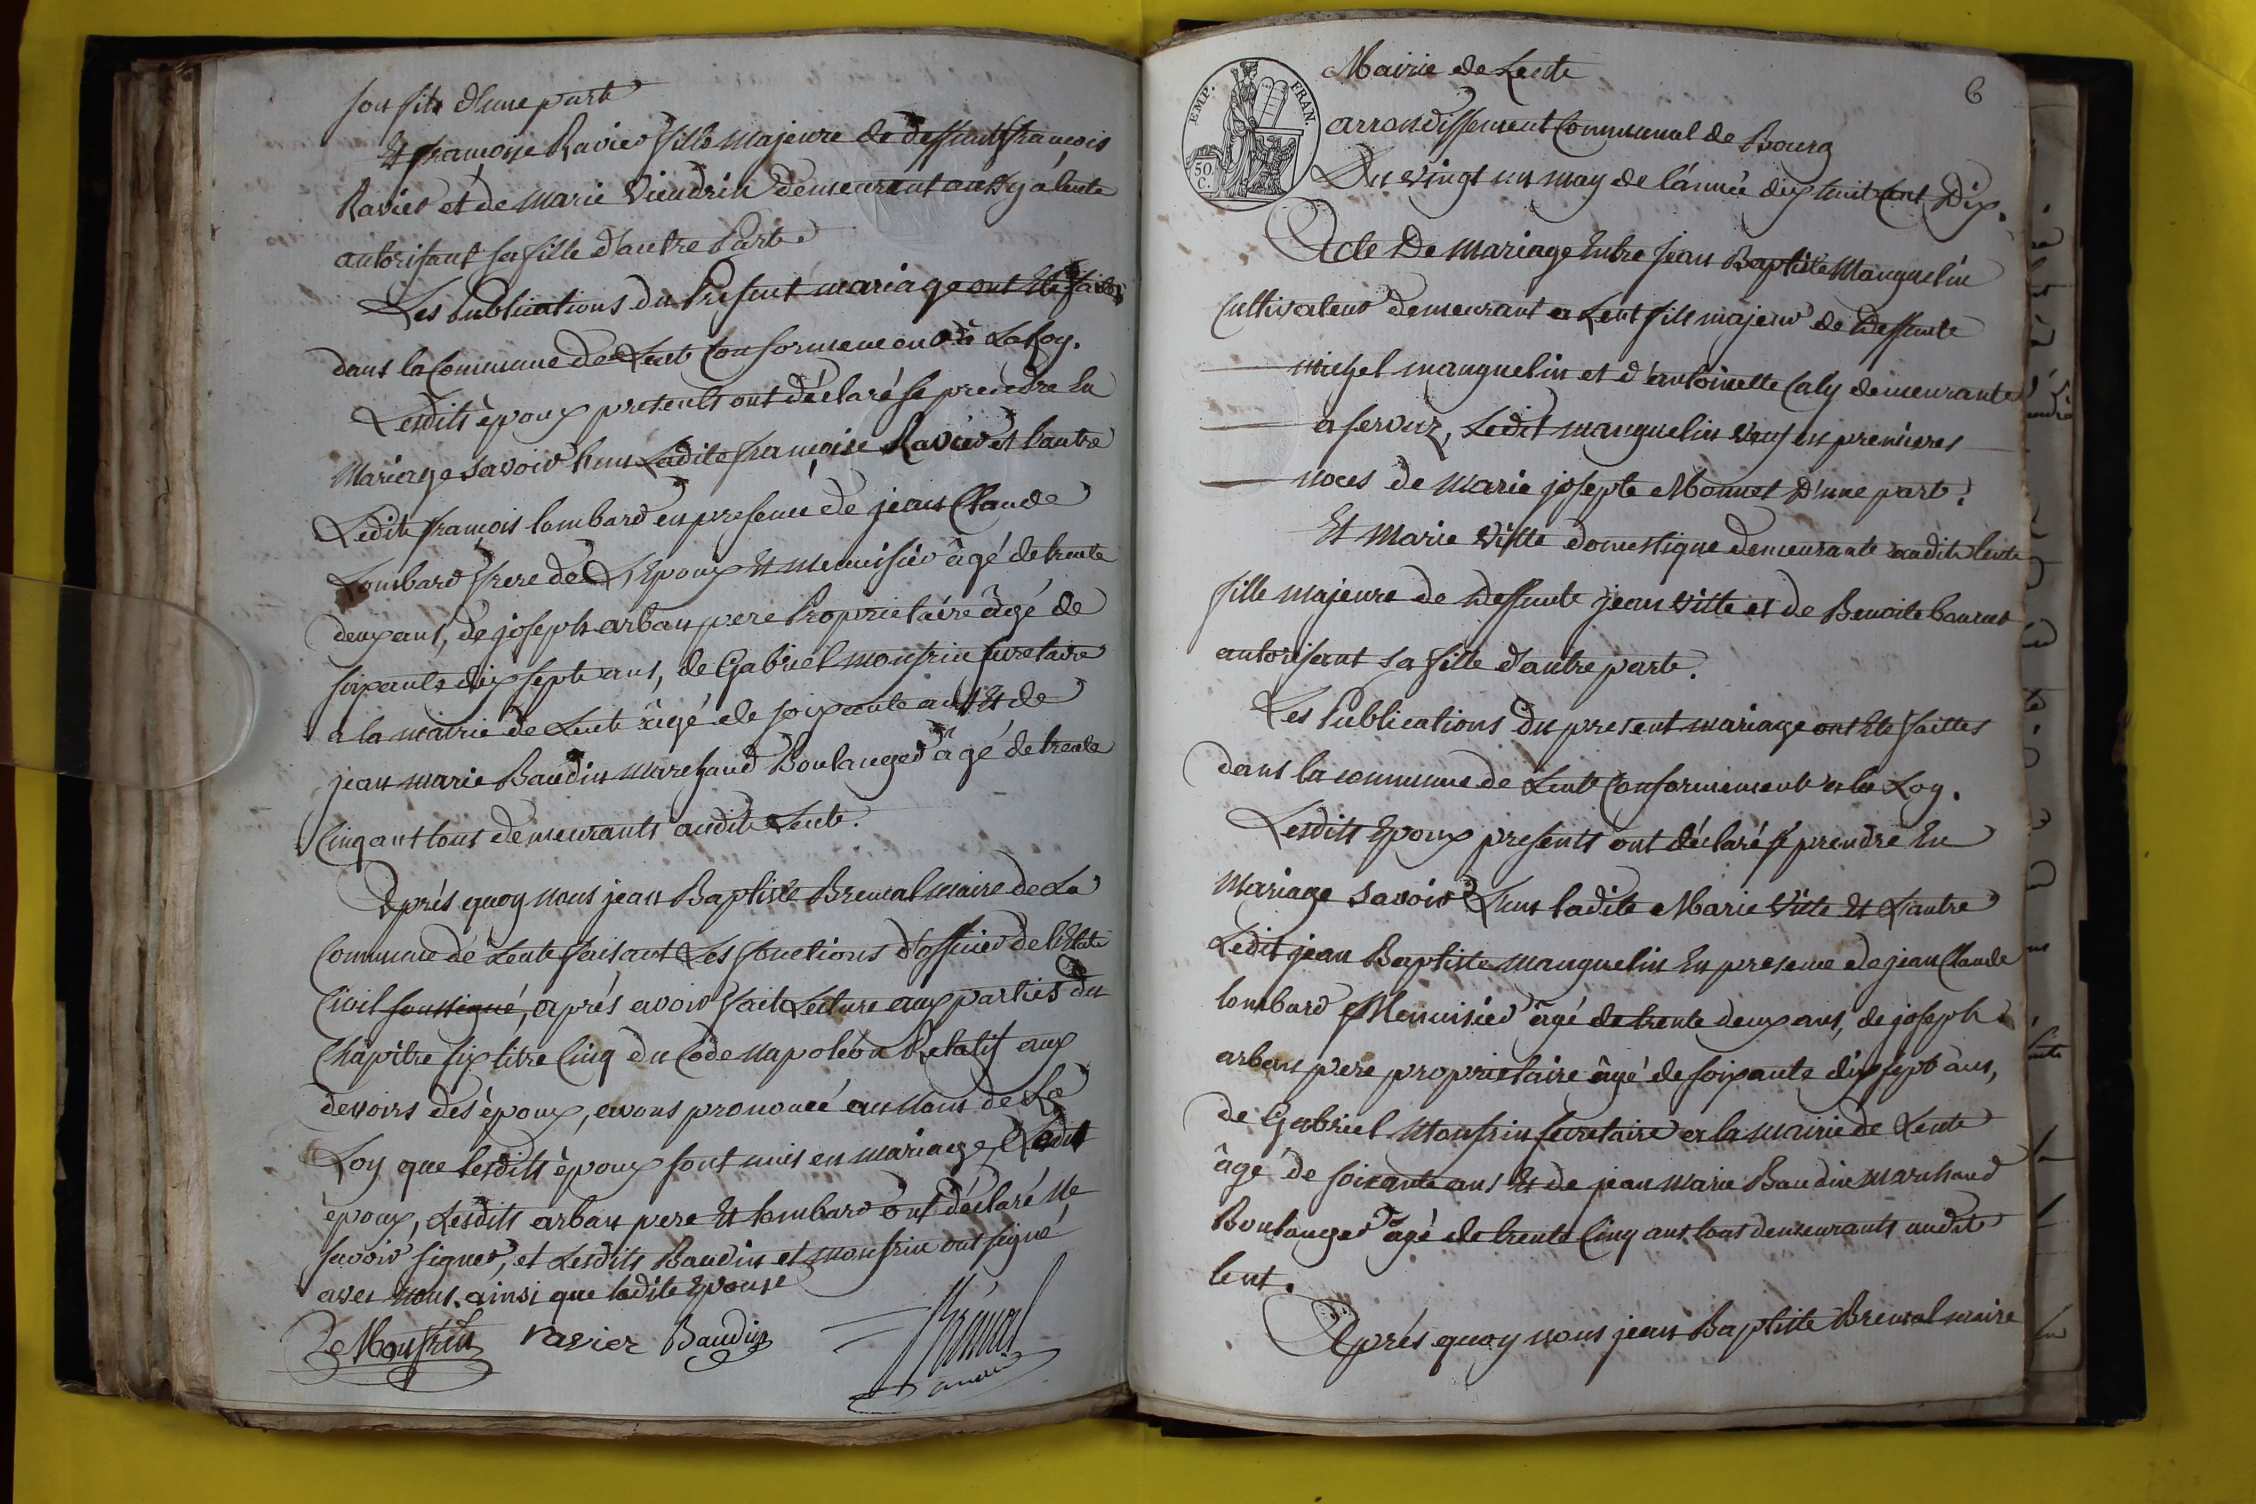 son fils d'une part
Et françoise Ravier fille majeure de deffunt françois
Ravier et de marie Vieudrin demeurant aussy a lente
autorisant sa fille d'autre Part
Les Publications du Present mariage ont Eté faites
dans la Commune de Lent Conformement à La Loy.
Lesdits èpoux presents ont déclaré se prendre En
Mariage savoir l'un Ladite françoise Ravier et l'autre
Ledit françois lombard en presence de jean Claude
Lombard frere de L'Epoux Et menuisier âgé de trente
deux ans, de joseph arban pere Proprietaire âgé de
soixante dix sept ans, de Gabriel monfrin secretaire
a la mairie de Lente âgé de soixante ans Et de
jean marie Baudin marchand Boulanger âgé de trente
Cinq ans tous demeurants audit Lente.
Après quoy nous jean Baptiste Breuval maire de La
Commune de Lente faisant Les fonctions d'officier de l'Etat
Civil soussigné, après avoir fait Lecture aux parties du
Chapitre six titre Cinq du Code Napoléon Relatif aux
devoirs des èpoux, avons prononcé au Nom de La
Loy que lesdits èpoux sont unis en mariage, Ledit
èpoux, Lesdits arban pere Et lombard ont déclaré Ne
savoir signer, et Lesdits Baudin et monfrin ont signé
avec nous. ainsi que ladite Epouse
Monfrin ravier Baudin
6
EMP. FRAN.
50 C.
Mairie de Lente
arrondissement Communal de Bourg
Du vingt un may de l'année dix huit Cent Dix.
Acte De mariage Entre jean Baptiste Manguelin
Cultivateur demeurant a Lent fils majeur de Deffunte
michel manguelin et d'antoinette Caly demeurante
a servaz, Ledit manguelin veuf en premieres
noces de marie josepte Monnet D'une part.
Et Marie Vitte domestique demeurante audit lente
fille majeure de Deffunte jean Vitte et de Benoite
autorisant sa fille d'autre part.
Les Publications du present mariage ont Eté faittes
dans la commune de Lente Conformement a la Loy.
Lesdits Epoux presents ont déclaré sé prendre En
Mariage Savoir L'un ladite Marie Vitte Et L'autre
Ledit jean Baptiste manguelin En presence de jean Claude
lombard Menuisier âgé de trente deux ans, de joseph
arban pere proprietaire âgé de soixante dix sept ans,
de Gabriel Monfrin secretaire a la mairie de Lente
âgé de soixante ans Et de jean marie Baudin marchand
Boulanger âgé de trente Cinq ans tous demeurants audit
lent.
Après quoy nous jean Baptiste Breuval maire